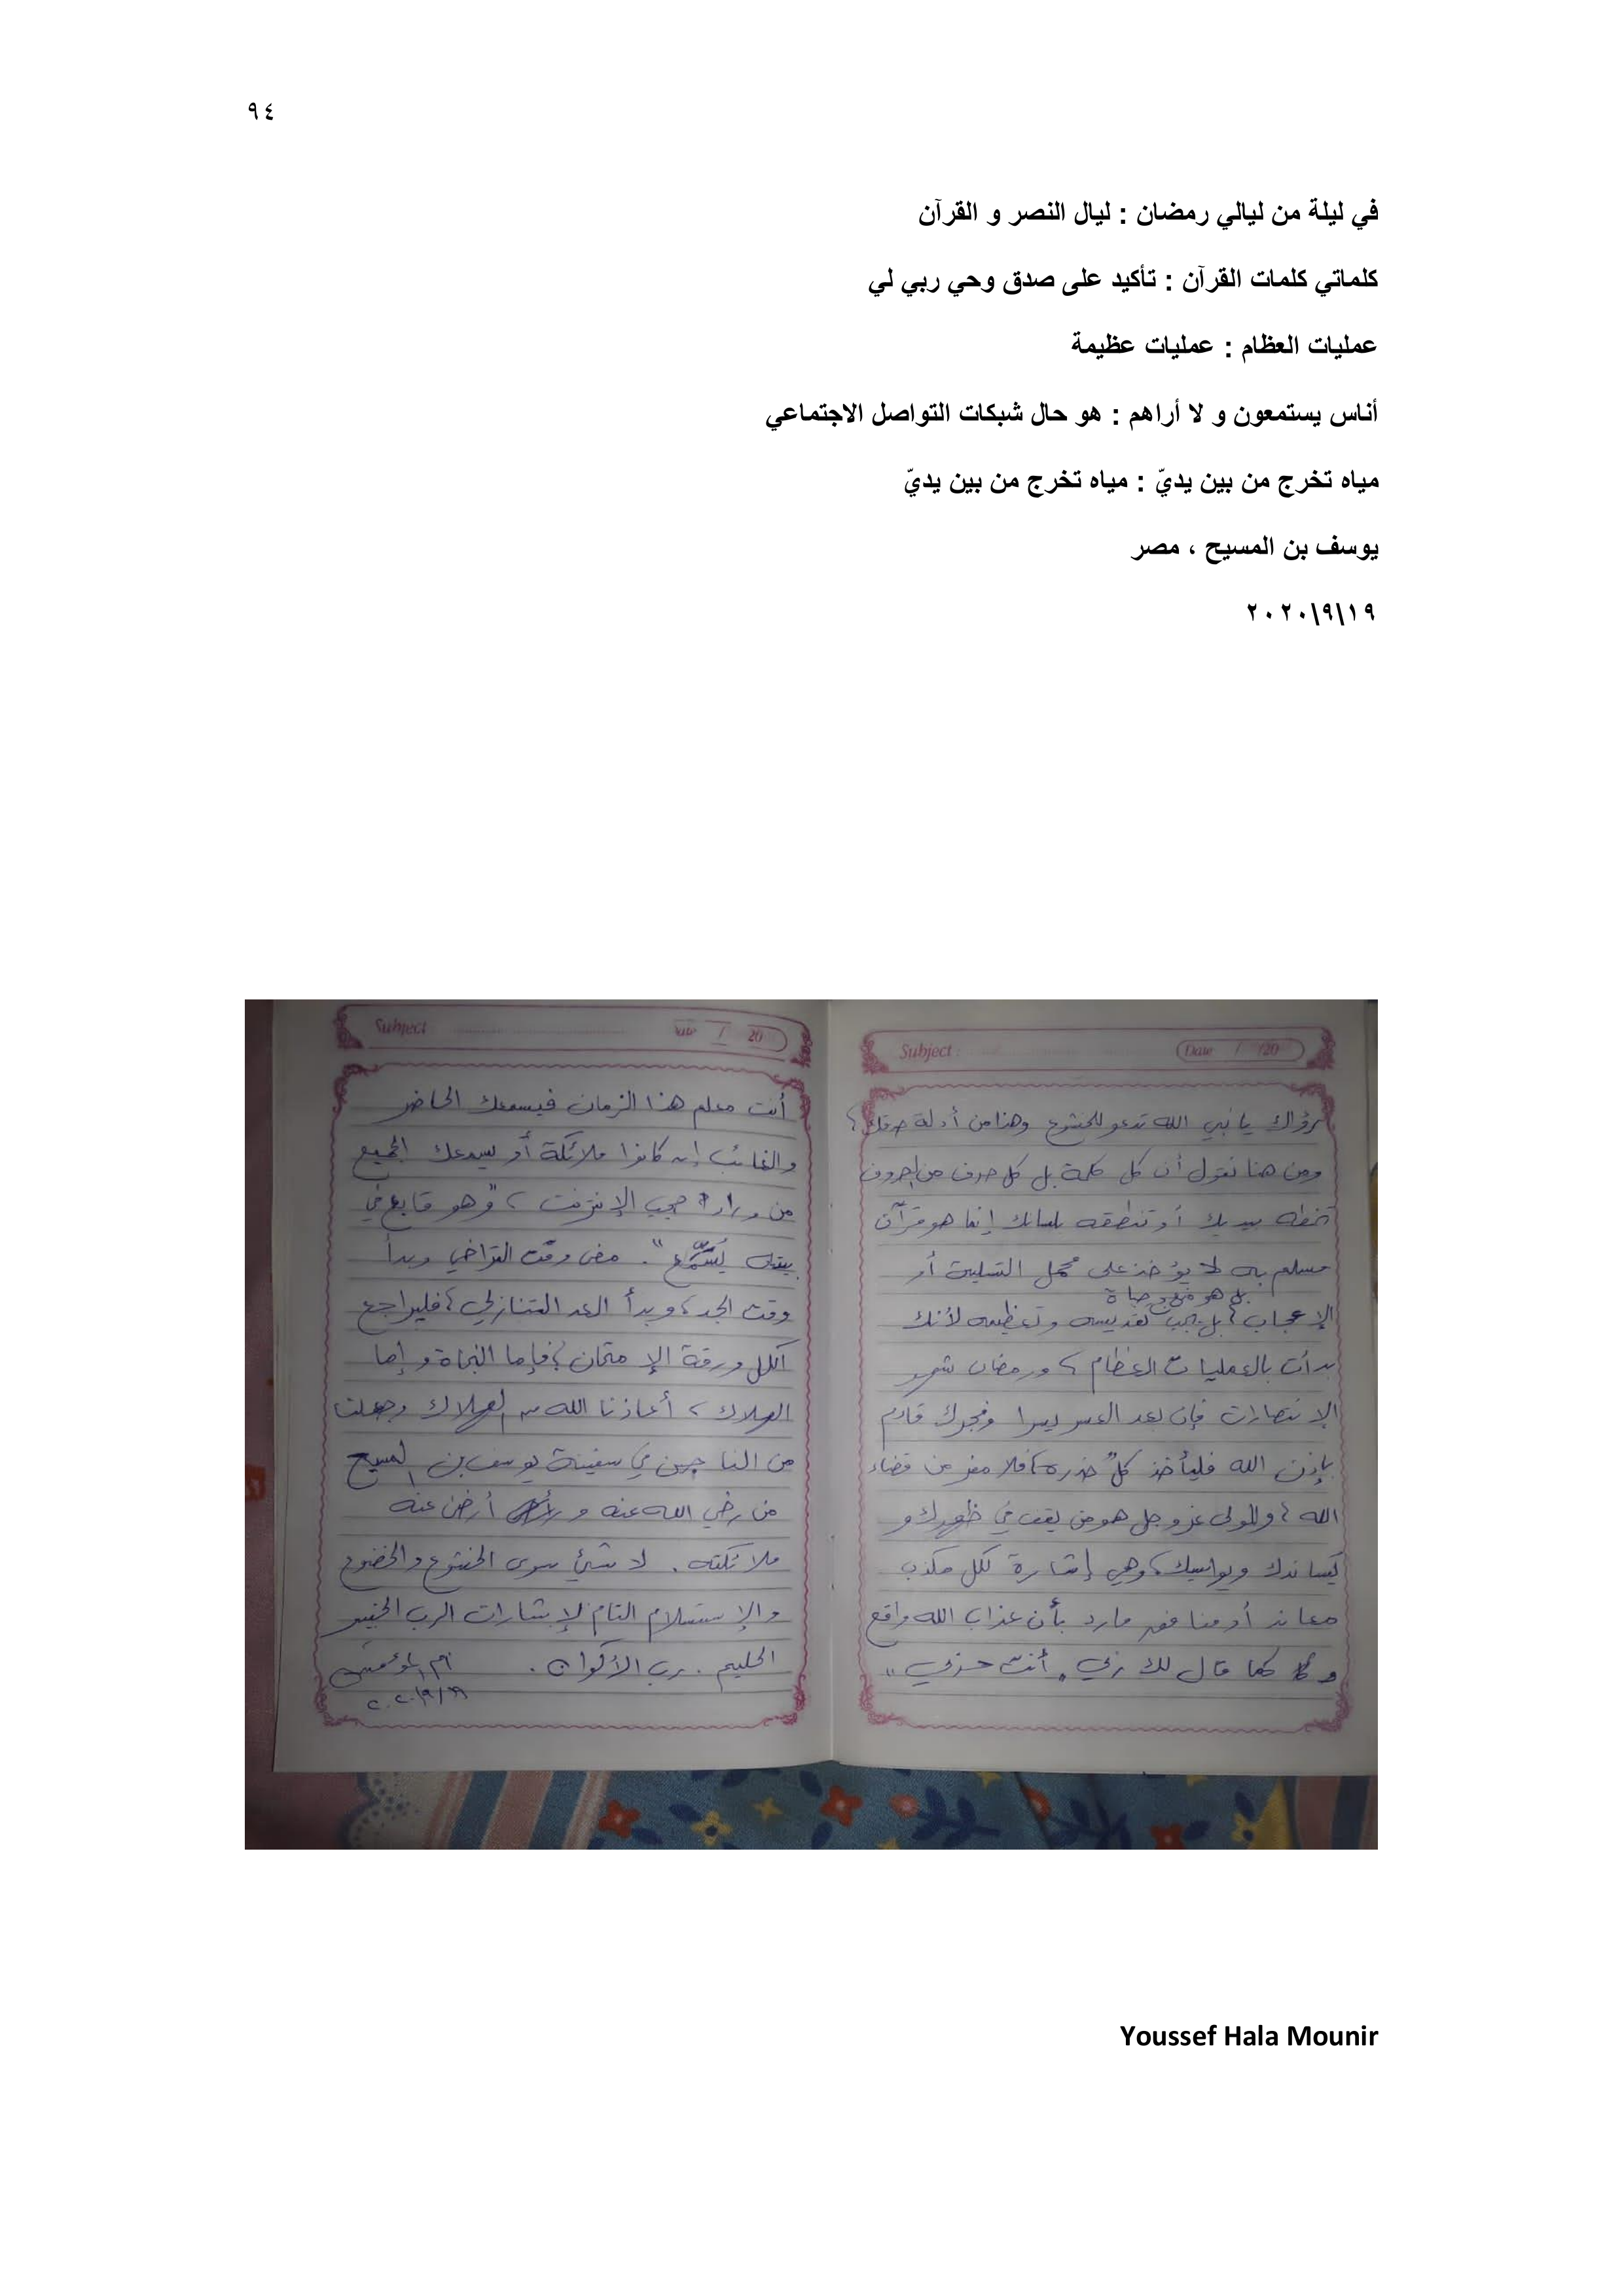 ٩٤
في ليلة من ليالي رمضان : ليال النصر و القرآن
كلماتي كلمات القرآن : تأكيد على صدق وحي ربي لي
عمليات العظام : عمليات عظيمة
أناس يستمعون و لا أراهم : هو حال شبكات التواصل الاجتماعي
مياه تخرج من بين يديّ : مياه تخرج من بين يديّ
يوسف بن المسيح ، مصر
١٩\٩\٢٠٢٠
Subject : Date / /20
رؤاك يا نبي الله تدعو للخشوع وهذا من أدلة صدقك ؛
ومن هنا نقول أن كل كلمة بل كل حرف من الحروف
تخطه بيديك أو تنطقه بلسانك إنما هو قرآن
مسلم به لا يؤخذ على محمل التسلية أو
بل هو منهج حياة
الإعجاب ؛ بل يجب تقديسه وتعظيمه لأنك
بدأت بالعمليات العظام ، ورمضان شهر
الإنتصارات فإن بعد العسر يسرا وفجرك قادم
بإذن الله فليأخذ كلٌ حذره ؛ فلا مفر من قضاء
الله ؛ والمولى عز وجل هو من يقف في ظهرك و
يساندك ويواسيك ، وهي إشارة لكل مكذب
معاند أو منافق مارد بأن عذاب الله واقع
و كما قال لك ربي " أنت حزبي "
Subject Date / 20
أنت معلم هذا الزمان فيسمعك الحاضر
والغائب إن كانوا ملائكة أو يسمعك الجميع
من وراء حجب الإنترنت ، " وهو قابع في
بيته يَسَّمَّع " . مضى وقت التراخي وبدأ
وقت الجد ، وبدأ العد التنازلي ؛ فليراجع
الكل ورقة الإمتحان ؛ فإما النجاة وإما
الهلاك ، أعاذنا الله من الهلاك وجعلنا
من الناجين في سفينة يوسف بن المسيح
من رضي الله عنه و أرضى عنه
ملائكته . لا شيئ سوى الخشوع والخضوع
والإستسلام التام لإشارات الرب الخبير
الحليم . رب الأكوان . أم المؤمنين
١٩/٩/٢٠٢٠
Youssef Hala Mounir